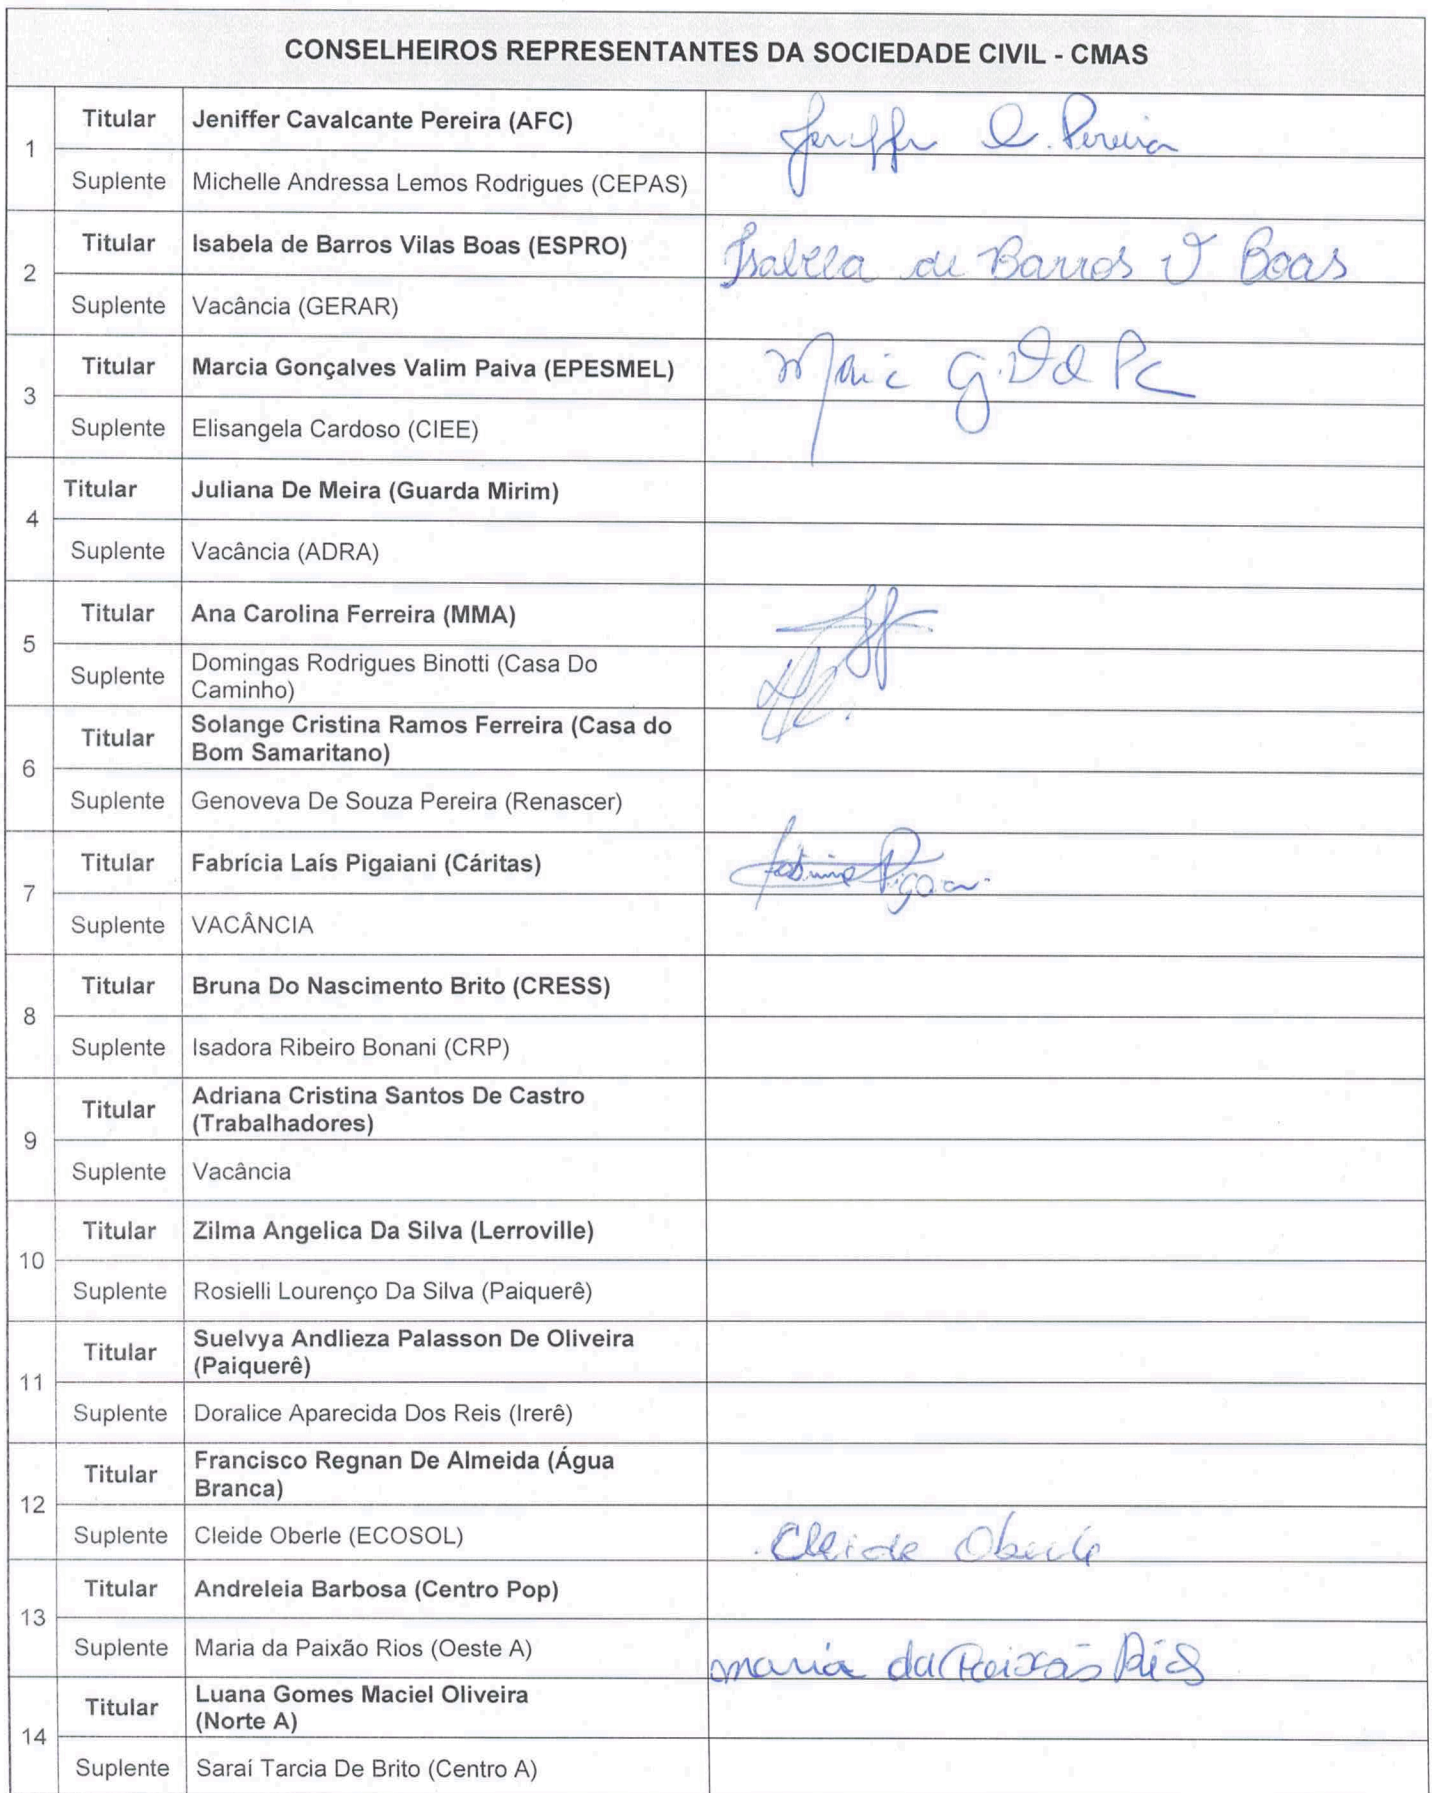 CONSELHEIROS REPRESENTANTES DA SOCIEDADE CIVIL - CMAS
1
Titular
Jeniffer Cavalcante Pereira (AFC)
Jeniffer C. Pereira
Suplente
Michelle Andressa Lemos Rodrigues (CEPAS)
2
Titular
Isabela de Barros Vilas Boas (ESPRO)
Isabela de Barros V Boas
Suplente
Vacância (GERAR)
3
Titular
Marcia Gonçalves Valim Paiva (EPESMEL)
Suplente
Elisangela Cardoso (CIEE)
4
Titular
Juliana De Meira (Guarda Mirim)
Suplente
Vacância (ADRA)
5
Titular
Ana Carolina Ferreira (MMA)
Suplente
Domingas Rodrigues Binotti (Casa Do
Caminho)
6
Titular
Solange Cristina Ramos Ferreira (Casa do
Bom Samaritano)
Suplente
Genoveva De Souza Pereira (Renascer)
7
Titular
Fabrícia Laís Pigaiani (Cáritas)
Suplente
VACÂNCIA
8
Titular
Bruna Do Nascimento Brito (CRESS)
Suplente
Isadora Ribeiro Bonani (CRP)
9
Titular
Adriana Cristina Santos De Castro
(Trabalhadores)
Suplente
Vacância
10
Titular
Zilma Angelica Da Silva (Lerroville)
Suplente
Rosielli Lourenço Da Silva (Paiquerê)
11
Titular
Suelvya Andlieza Palasson De Oliveira
(Paiquerê)
Suplente
Doralice Aparecida Dos Reis (Irerê)
12
Titular
Francisco Regnan De Almeida (Água
Branca)
Suplente
Cleide Oberle (ECOSOL)
Cleide Oberle
13
Titular
Andreleia Barbosa (Centro Pop)
Suplente
Maria da Paixão Rios (Oeste A)
maria da Paixão Rios
14
Titular
Luana Gomes Maciel Oliveira
(Norte A)
Suplente
Saraí Tarcia De Brito (Centro A)